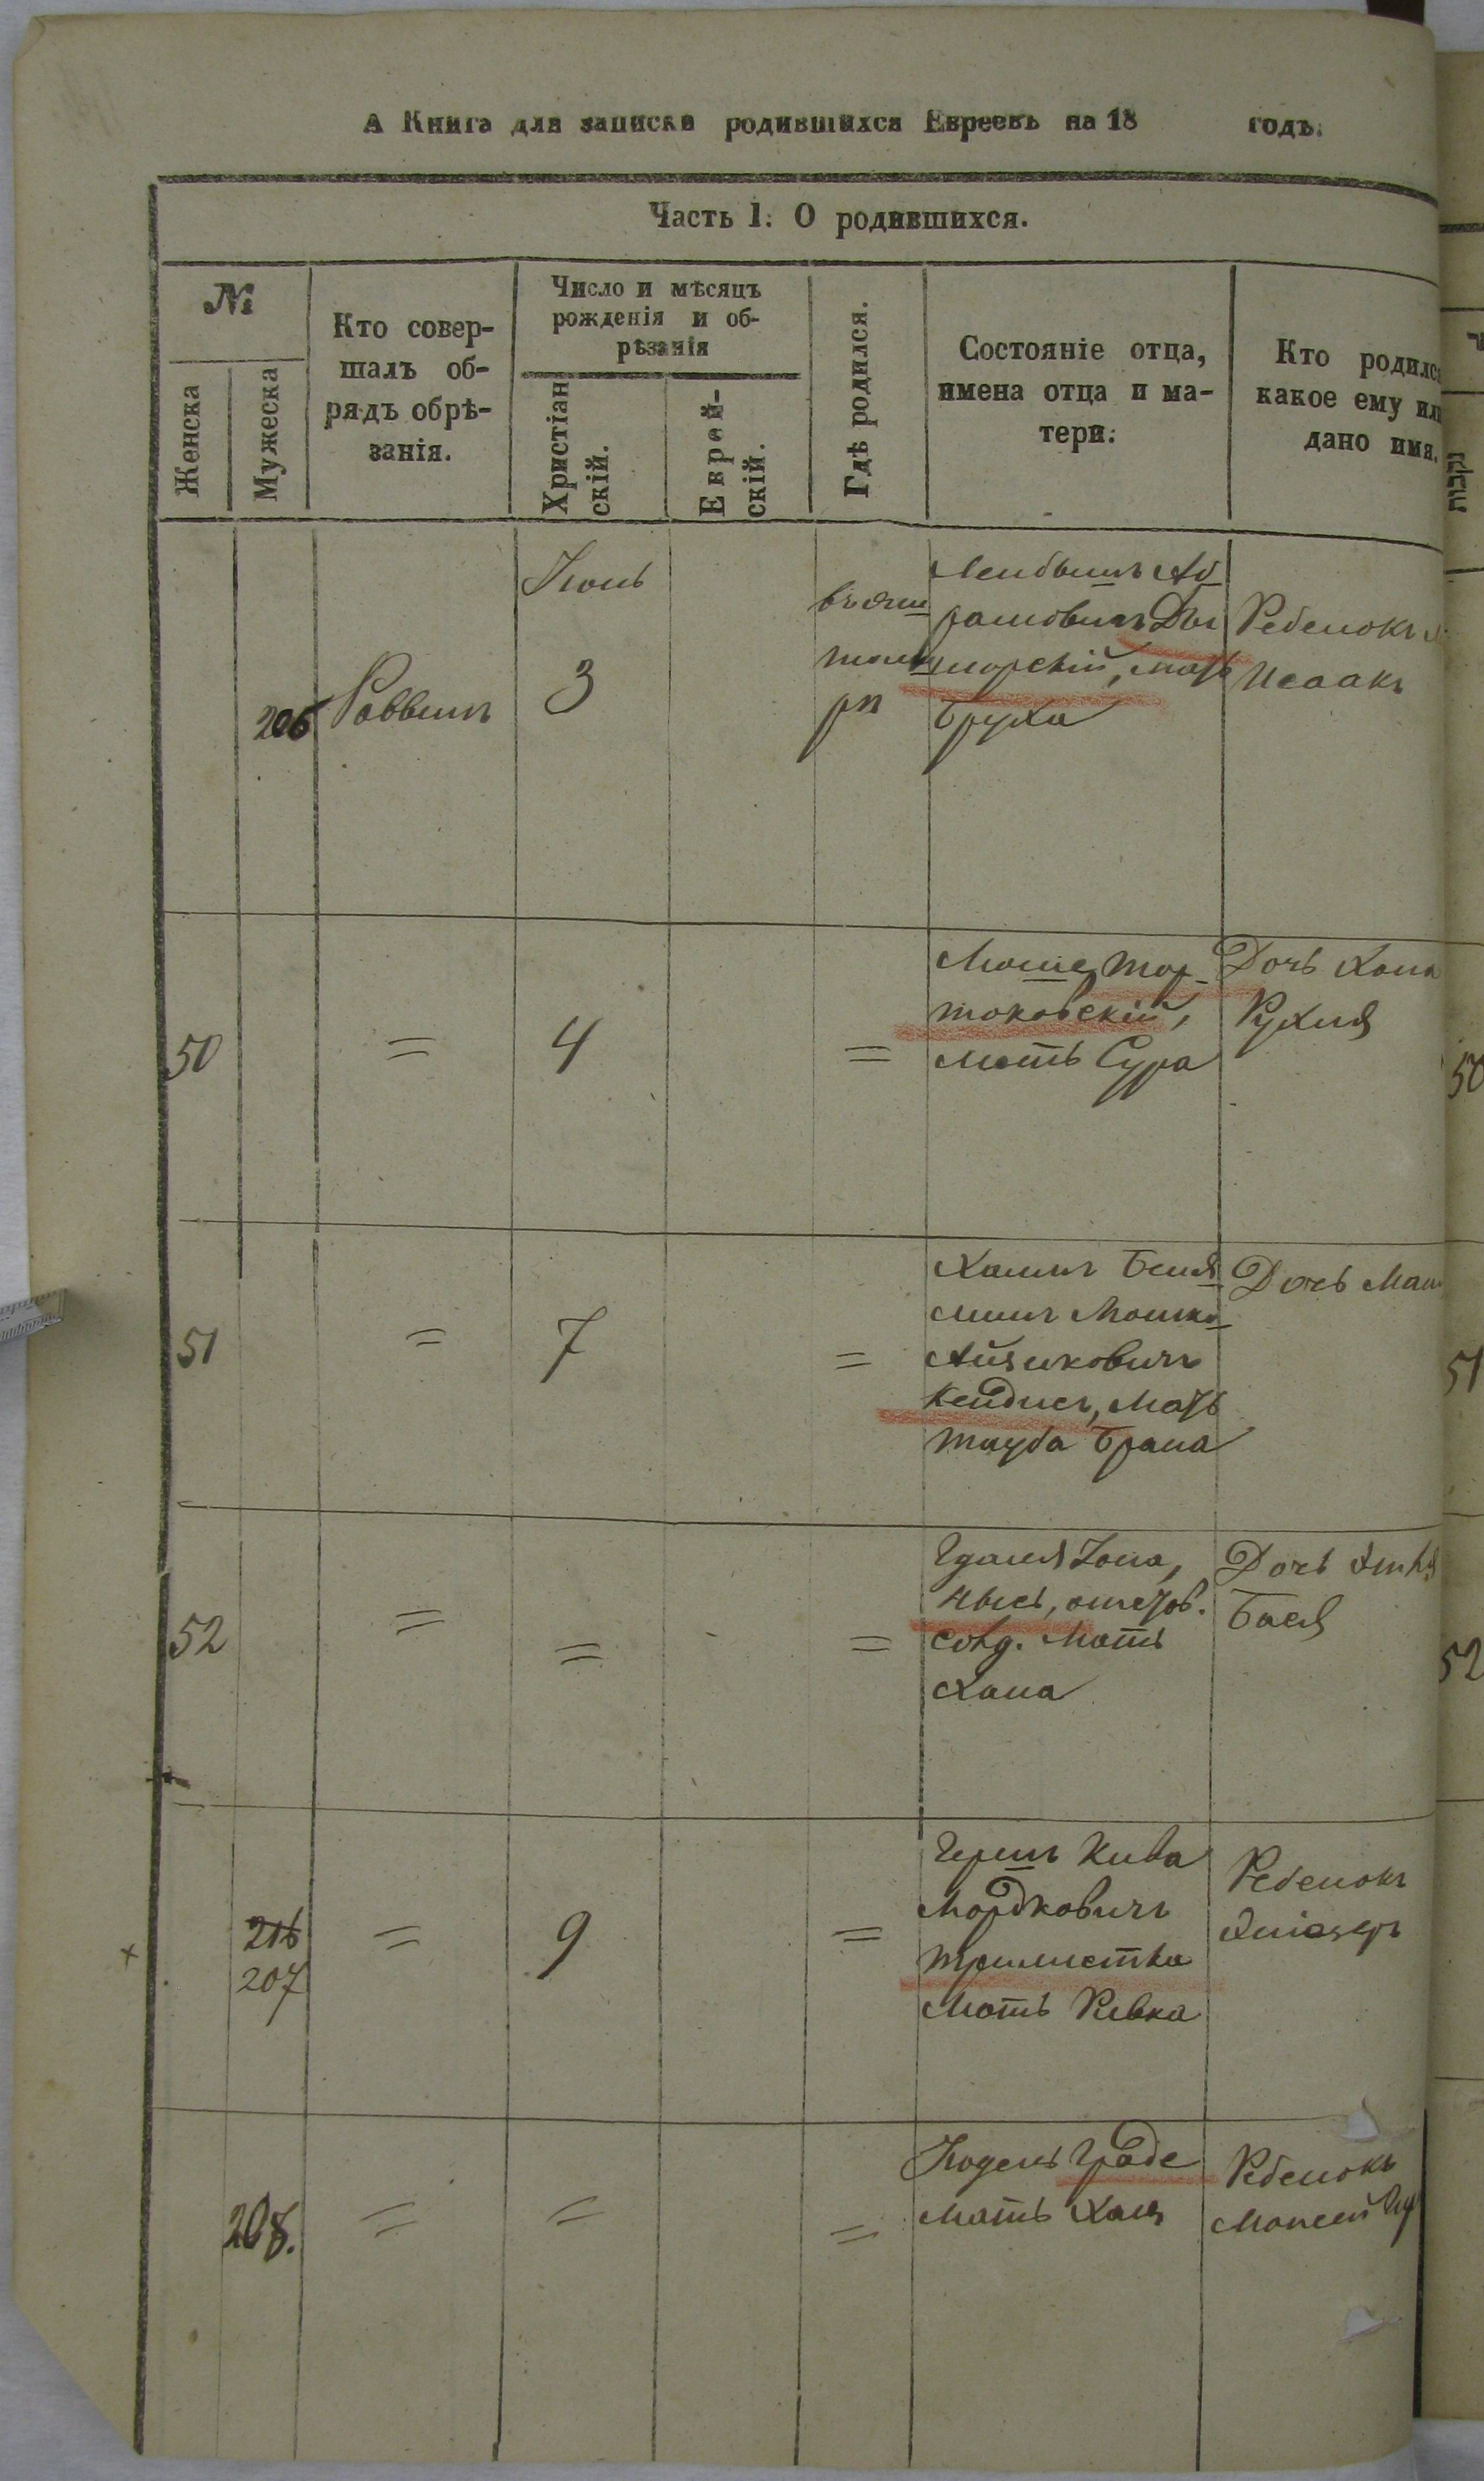 А Книга для записки родившихся Евреевъ на 18 годъ.
Часть 1. О родившихся.
№
Женска
Мужеска
Кто совер-
шалъ об-
рядъ обрѣ-
занія.
Число и мѣсяцъ
рожденія и об-
рѣзанія
Христіан
скій.
Еврей-
скій.
Гдѣ родился.
Состояніе отца,
имена отца и ма-
тери.
Кто родилс
какое ему ил
дано имя.
נקבות
206
Раввинъ
Іюнь
3
въ
Лейбышъ Аб
рамовичъ
морскій, мать
Бруха
Ребенокъ
Исаакъ
50
=
4
=
Моше Тор
токовскій,
мать Сура
Дочь Хана
Рухля
50
51
=
7
=
Хаимъ Беня
минъ Мошко
Айзиковичъ
Кейдисъ, мать
Тауба Брана
Дочь
51
52
=
=
=
Гдаля
мать
Хана
Дочь
Бася
52
216
207
=
9
=
Гершъ Кива
Мордковичъ
Мать Ривка
Ребенокъ
Эліазеръ
208.
=
=
=
Юдель Граде
Мать Хая
Ребенокъ
Моисей